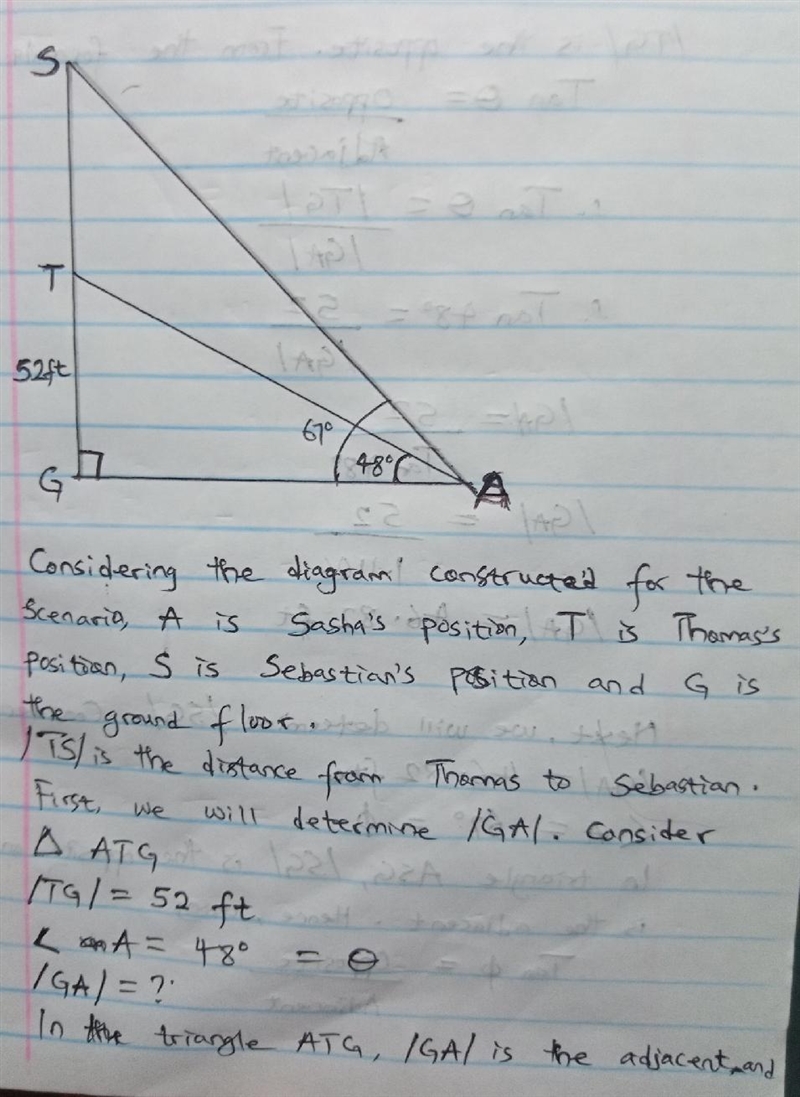 S
T
52ft
67°
48°
G
A
Considering the diagram constructed for the
scenario, A is Sasha's position, T is Thomas's
position, S is Sebastian's position and G is
the ground floor.
/TS/ is the distance from Thomas to Sebastian.
First, we will determine /GA/. Consider
Δ ATG
/TG/ = 52 ft
< A = 48° = θ
/GA/ = ?
In the triangle ATG, /GA/ is the adjacent, and